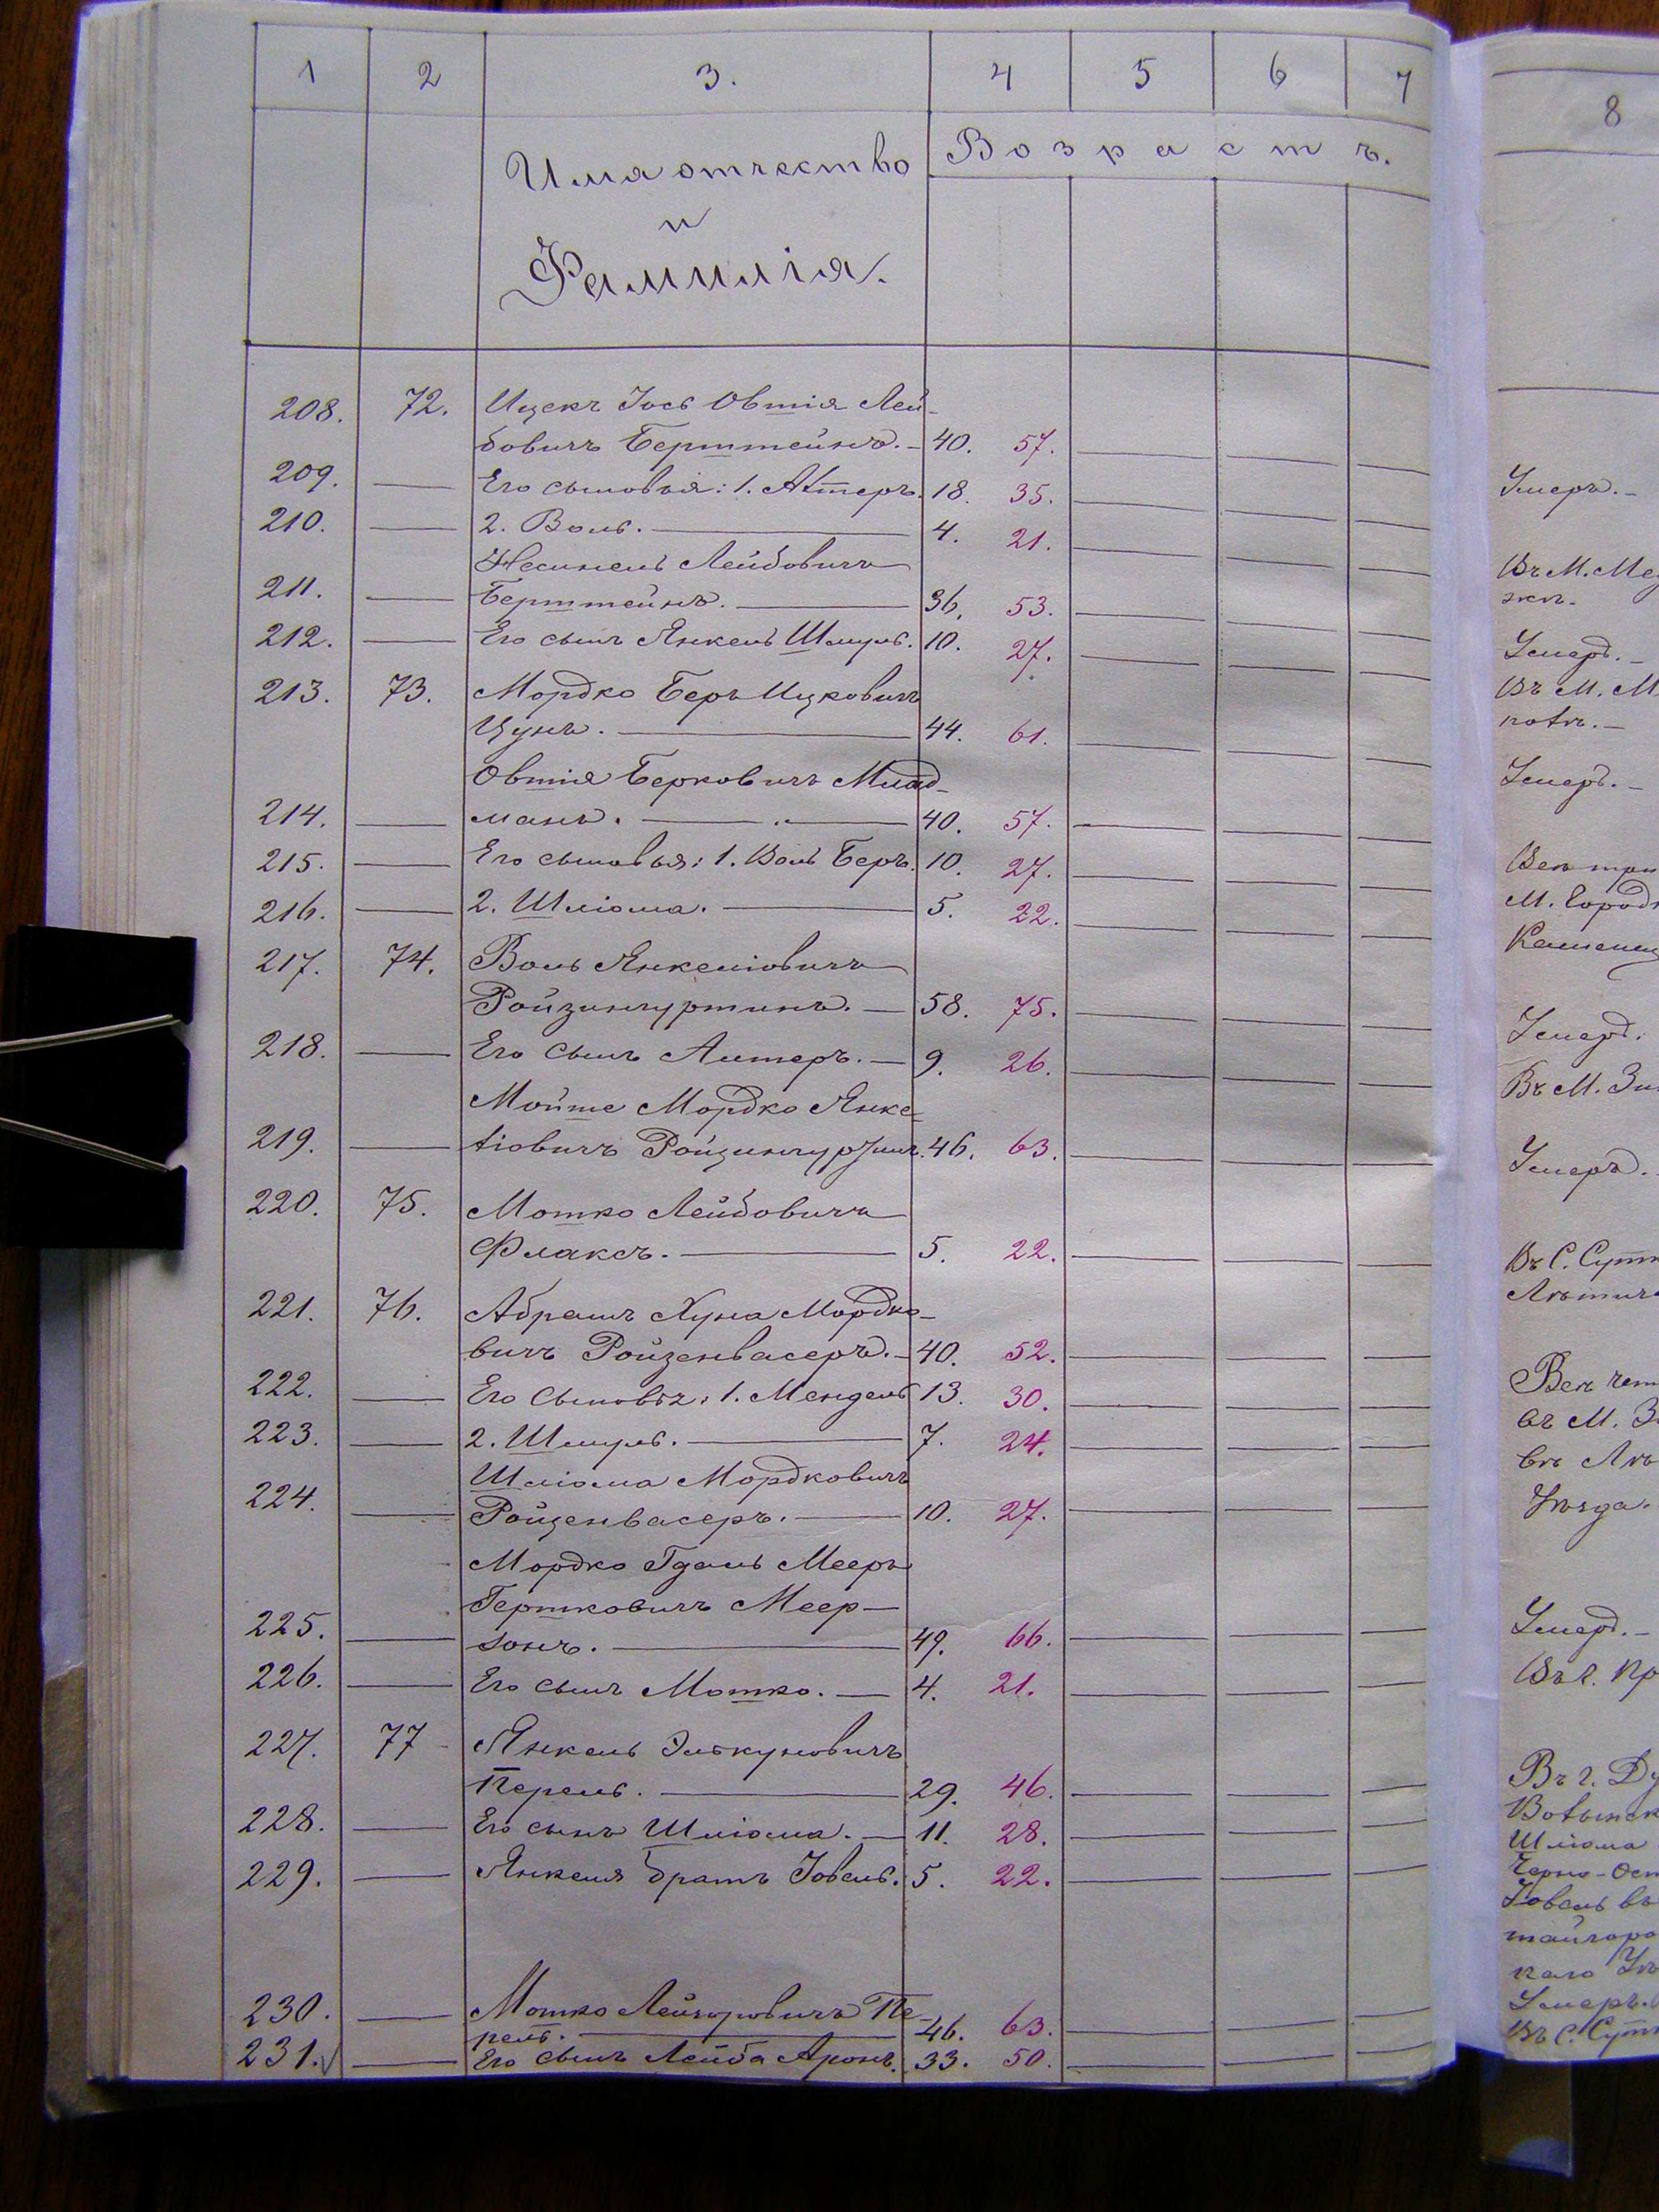 1 2 3. 4 5 6 7
Имя отчество Возрастъ.
и
Фамилія.
208. 72. Ицекъ Іось Овшія Лей-
бовичъ Берштейнъ. 40. 57.
209. Его сыновья: 1. Алтеръ. 18. 35.
210. 2. Воль. 4. 21.
Лейбовичъ
211. Берштейнъ. 36. 53.
212. Его сынъ Янкель Шмуль. 10. 27.
213. 73. Мордко Беръ Ицковичъ
Цунъ. 44. 61.
Овшія Берковичъ
214. манъ. 40. 57.
215. Его сыновья: 1. Воль Беръ. 10. 27.
216. 2. Шліома. 5. 22.
217. 74. Воль Янкеліовичъ
58. 75.
218. Его сынъ Алтеръ. 9. 26.
Мойше Мордко Янке-
219. ліовичъ 46. 63.
220. 75. Мошко Лейбовичъ
Флаксъ. 5. 22.
221. 76. Абрамъ Хуна Мордко-
вичъ Ройзенвасеръ. 40. 52.
222. Его сыновья: 1. Мендель 13. 30.
223. 2. Шмуль. 7. 24.
Шліома Мордковичъ
224. Ройзенвасеръ. 10. 27.
Мордко Гдаль Мееръ
Гершковичъ Меер-
225. зонъ. 49. 66.
226. Его сынъ Мошко. 4. 21.
227. 77 Янкель Элькуновичъ
Перель. 29. 46.
228. Его сынъ Шліома. 11. 28.
229. Янкеля братъ Іовель. 5. 22.
230. Мошко Лейзоровичъ Пе-
рель. 46. 63.
231. Его сынъ Лейба Аронъ. 33. 50.
8
Умеръ.
Въ М.
Умеръ.
Въ М. М
Умеръ.
Всѣ три
М. Город
Каменец
Умеръ.
Въ М. Зин
Умеръ.
Въ С. Сутк
Лѣтич
Всѣ чет
въ М. З
въ Лѣ
Уѣзда.
Умеръ.
Въ г. Пр
Въ г. Ду
Волынск
Шліома
Черно-Ост
Іовель въ
Умеръ.
Въ С. Сутк